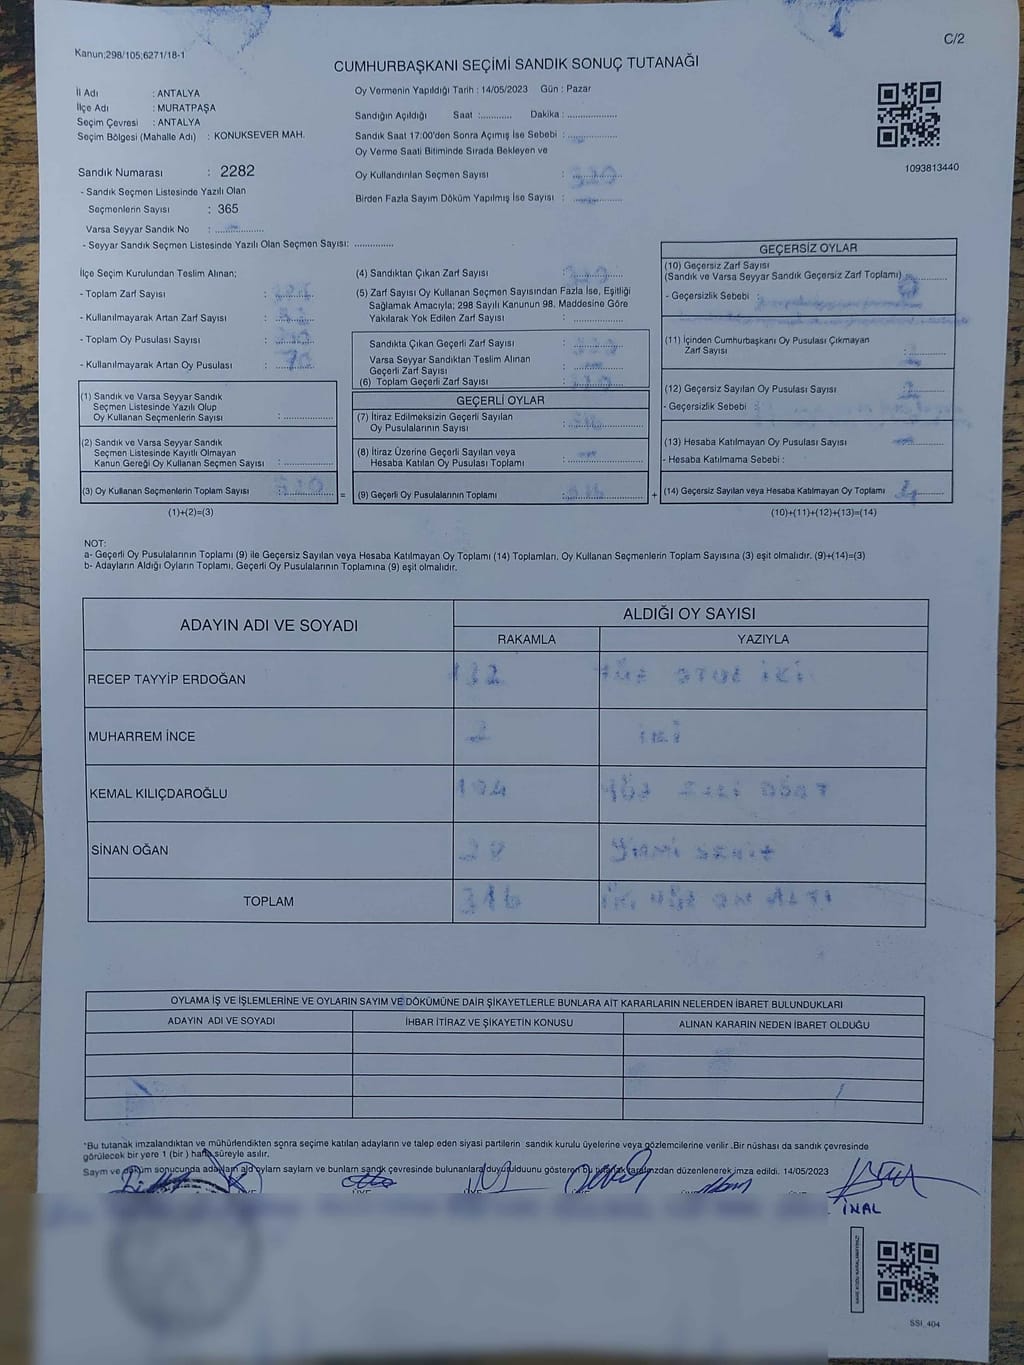 Kanun;298/105;6271/18-1
C/2
CUMHURBAŞKANI SEÇİMİ SANDIK SONUÇ TUTANAĞI
İl Adı : ANTALYA
İlçe Adı : MURATPAŞA
Seçim Çevresi : ANTALYA
Seçim Bölgesi (Mahalle Adı) : KONUKSEVER MAH.
Oy Vermenin Yapıldığı Tarih : 14/05/2023 Gün : Pazar
Sandığın Açıldığı Saat :........... Dakika : .................
Sandık Saat 17:00'den Sonra Açımış İse Sebebi :
Oy Verme Saati Bitiminde Sırada Bekleyen ve
Oy Kullandırılan Seçmen Sayısı : 320
Birden Fazla Sayım Döküm Yapılmış İse Sayısı :
1093813440
Sandık Numarası : 2282
- Sandık Seçmen Listesinde Yazılı Olan
Seçmenlerin Sayısı : 365
Varsa Seyyar Sandık No :
- Seyyar Sandık Seçmen Listesinde Yazılı Olan Seçmen Sayısı: ..............
İlçe Seçim Kurulundan Teslim Alınan:
- Toplam Zarf Sayısı :
- Kullanılmayarak Artan Zarf Sayısı :
- Toplam Oy Pusulası Sayısı :
- Kullanılmayarak Artan Oy Pusulası : 70
(1) Sandık ve Varsa Seyyar Sandık
Seçmen Listesinde Yazılı Olup
Oy Kullanan Seçmenlerin Sayısı :
(2) Sandık ve Varsa Seyyar Sandık
Seçmen Listesinde Kayıtlı Olmayan
Kanun Gereği Oy Kullanan Seçmen Sayısı :
(3) Oy Kullanan Seçmenlerin Toplam Sayısı 320 =
(1)+(2)=(3)
(4) Sandıktan Çıkan Zarf Sayısı : 320
(5) Zarf Sayısı Oy Kullanan Seçmen Sayısından Fazla İse, Eşitliği
Sağlamak Amacıyla; 298 Sayılı Kanunun 98. Maddesine Göre
Yakılarak Yok Edilen Zarf Sayısı :
Sandıkta Çıkan Geçerli Zarf Sayısı : 320
Varsa Seyyar Sandıktan Teslim Alınan
Geçerli Zarf Sayısı :
(6) Toplam Geçerli Zarf Sayısı : 320
GEÇERLİ OYLAR
(7) İtiraz Edilmeksizin Geçerli Sayılan
Oy Pusulalarının Sayısı : 316
(8) İtiraz Üzerine Geçerli Sayılan veya
Hesaba Katılan Oy Pusulası Toplamı :
(9) Geçerli Oy Pusulalarının Toplamı : 316 +
GEÇERSİZ OYLAR
(10) Geçersiz Zarf Sayısı
(Sandık ve Varsa Seyyar Sandık Geçersiz Zarf Toplamı)
- Geçersizlik Sebebi :
(11) İçinden Cumhurbaşkanı Oy Pusulası Çıkmayan
Zarf Sayısı :
(12) Geçersiz Sayılan Oy Pusulası Sayısı :
- Geçersizlik Sebebi :
(13) Hesaba Katılmayan Oy Pusulası Sayısı :
- Hesaba Katılmama Sebebi :
(14) Geçersiz Sayılan veya Hesaba Katılmayan Oy Toplamı : 4
(10)+(11)+(12)+(13)=(14)
NOT:
a- Geçerli Oy Pusulalarının Toplamı (9) ile Geçersiz Sayılan veya Hesaba Katılmayan Oy Toplamı (14) Toplamları, Oy Kullanan Seçmenlerin Toplam Sayısına (3) eşit olmalıdır. (9)+(14)=(3)
b- Adayların Aldığı Oyların Toplamı, Geçerli Oy Pusulalarının Toplamına (9) eşit olmalıdır.
ADAYIN ADI VE SOYADI ALDIĞI OY SAYISI
RAKAMLA YAZIYLA
RECEP TAYYİP ERDOĞAN 132 YÜZ OTUZ İKİ
MUHARREM İNCE 2 İKİ
KEMAL KILIÇDAROĞLU
SİNAN OĞAN 28 YİRMİ SEKİZ
TOPLAM 316 ÜÇ YÜZ ON ALTI
OYLAMA İŞ VE İŞLEMLERİNE VE OYLARIN SAYIM VE DÖKÜMÜNE DAİR ŞİKAYETLERLE BUNLARA AİT KARARLARIN NELERDEN İBARET BULUNDUKLARI
ADAYIN ADI VE SOYADI İHBAR İTİRAZ VE ŞİKAYETİN KONUSU ALINAN KARARIN NEDEN İBARET OLDUĞU
*Bu tutanak imzalandıktan ve mühürlendikten sonra seçime katılan adayların ve talep eden siyasi partilerin sandık kurulu üyelerine veya gözlemcilerine verilir .Bir nüshası da sandık çevresinde
görülecek bir yere 1 (bir ) hafta süreyle asılır.
Sayım ve döküm sonucunda adayların ald oyların sayların ve bunların sandk çevresinde bulunanlara duyurulduunu gösteren bu tutanak tarafımızdan düzenlenerek imza edildi. 14/05/2023
İNAL
SSI_404